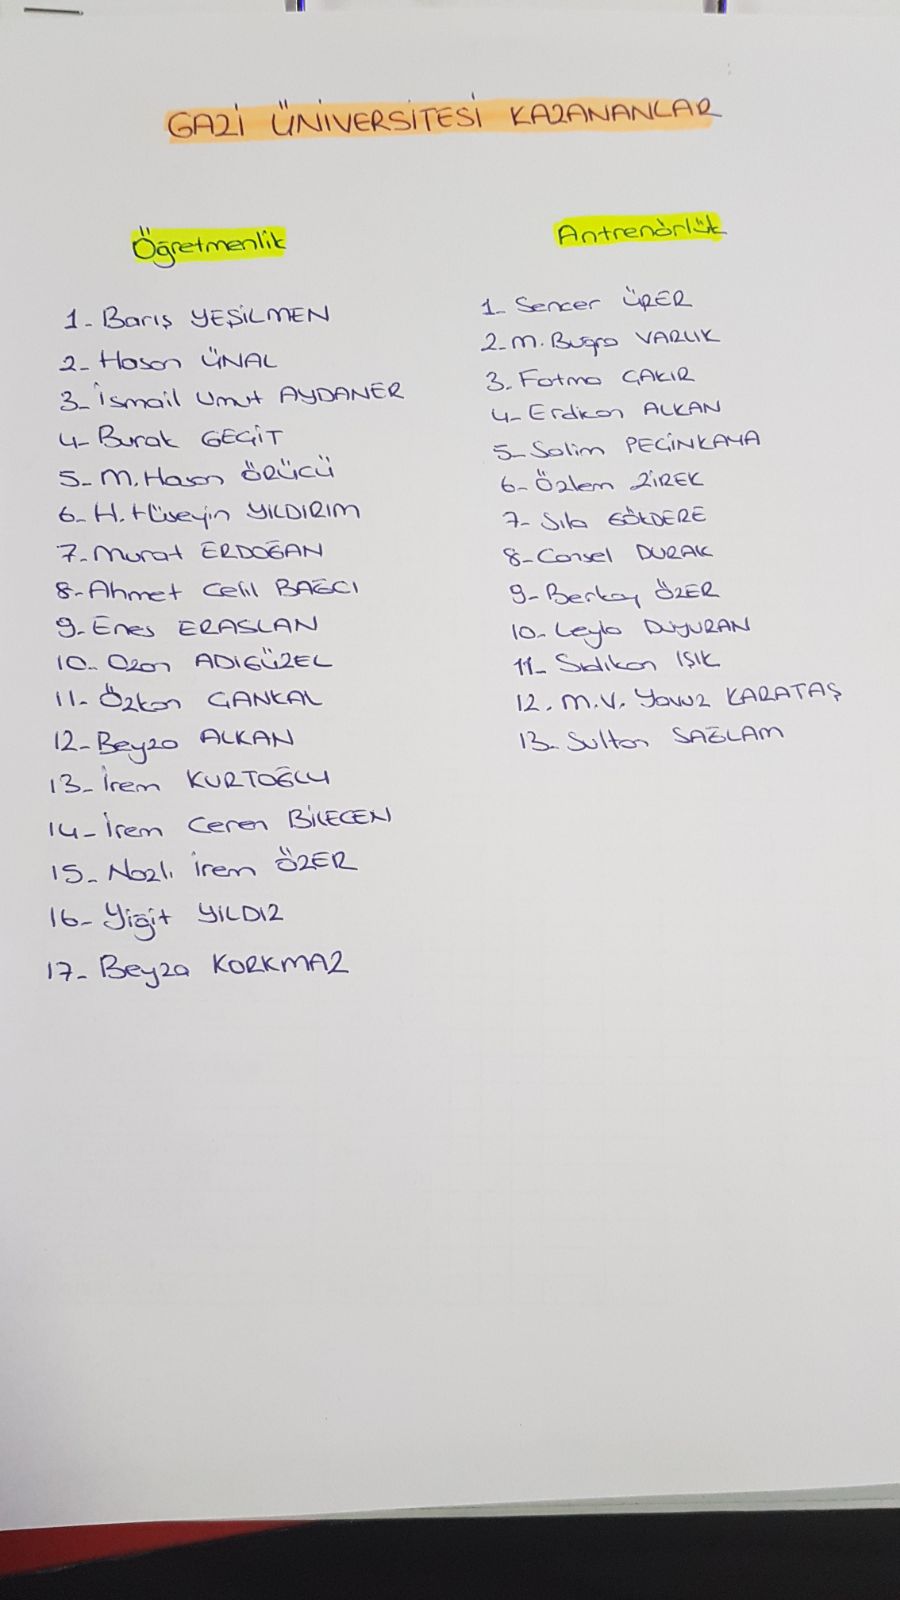 GAZİ ÜNİVERSİTESİ KAZANANLAR
Öğretmenlik
1- Barış YEŞİLMEN
2- Hasan ÜNAL
3- İsmail Umut AYDANER
4- Burak GEÇİT
5- M. Hasan ÖRÜCÜ
6- H. Hüseyin YILDIRIM
7- Murat ERDOĞAN
8- Ahmet Celil BAĞCI
9- Enes ERASLAN
10- Ozan ADIGÜZEL
11- Özkan ÇANKAL
12- Beyza ALKAN
13- İrem KURTOĞLU
14- İrem Ceren BİLECEN
15- Nazlı İrem ÖZER
16- Yiğit YILDIZ
17- Beyza KORKMAZ
Antrenörlük
1- Sencer ÜRER
2- M. Buğra VARLIK
3. Fatma ÇAKIR
4- Erdikan ALKAN
5- Salim PEÇİNKAYA
6- Özlem ZİREK
7- Sıla GÖKDERE
8- Cansel DURAK
9- Berkay ÖZER
10- Leyla DUYURAN
11- Sıdıkan IŞIK
12. M.V. Yavuz KARATAŞ
13- Sultan SAĞLAM